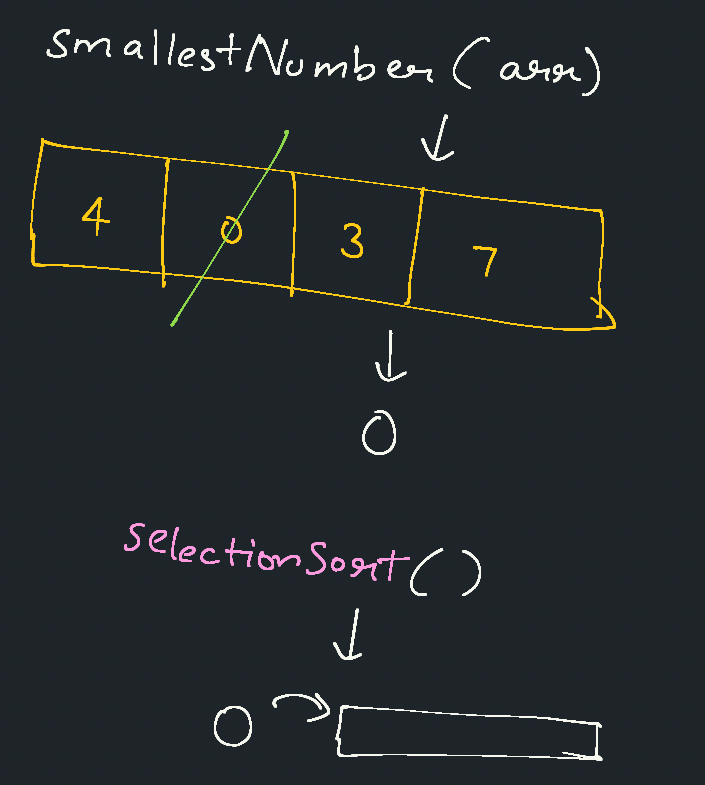 smallestNumber(arr)
4 0 3 7
0
selectionSort()
0